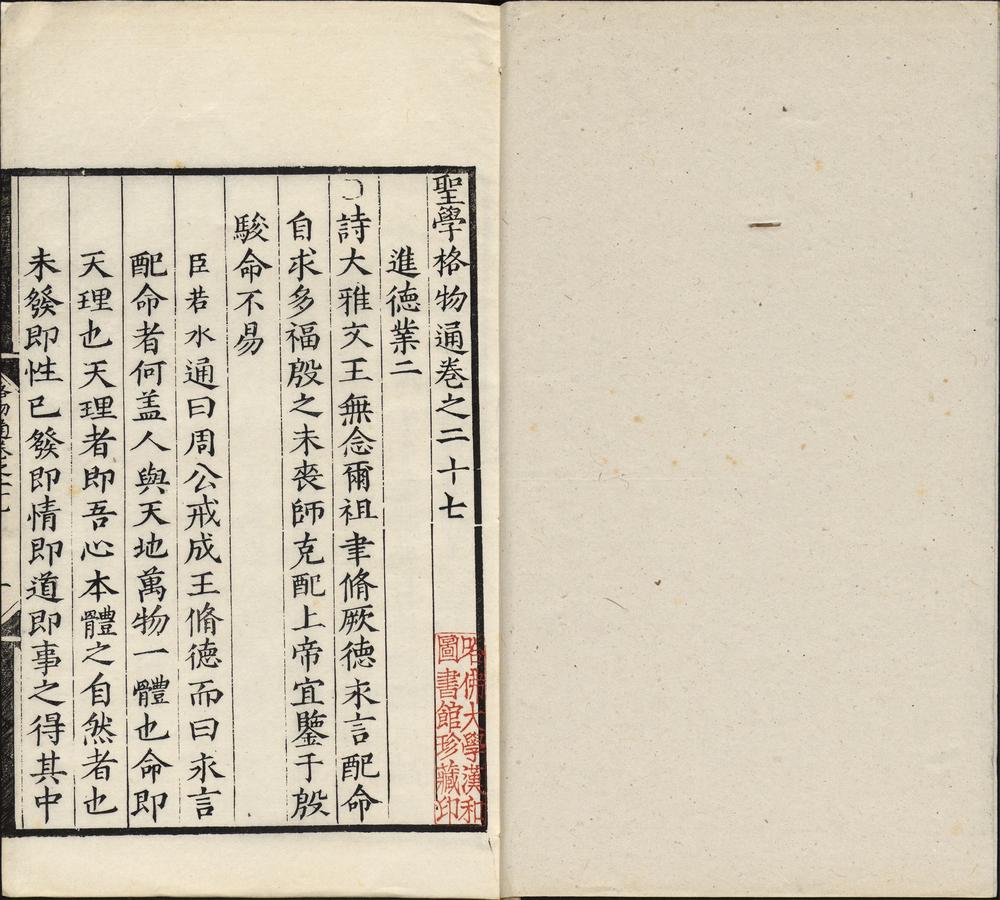 聖學格物通卷之二十七
進德業二
○詩大雅文王無念爾祖聿脩厥德永言配命
自求多福殷之未喪師克配上帝宜鑒于殷
駿命不易
臣若水通曰周公戒成王脩德而曰永言
配命者何盖人與天地萬物一體也命即
天理也天理者即吾心本體之自然者也
未發即性已發即情即道即事之得其中
哈佛大學漢和
圖書館珍藏印